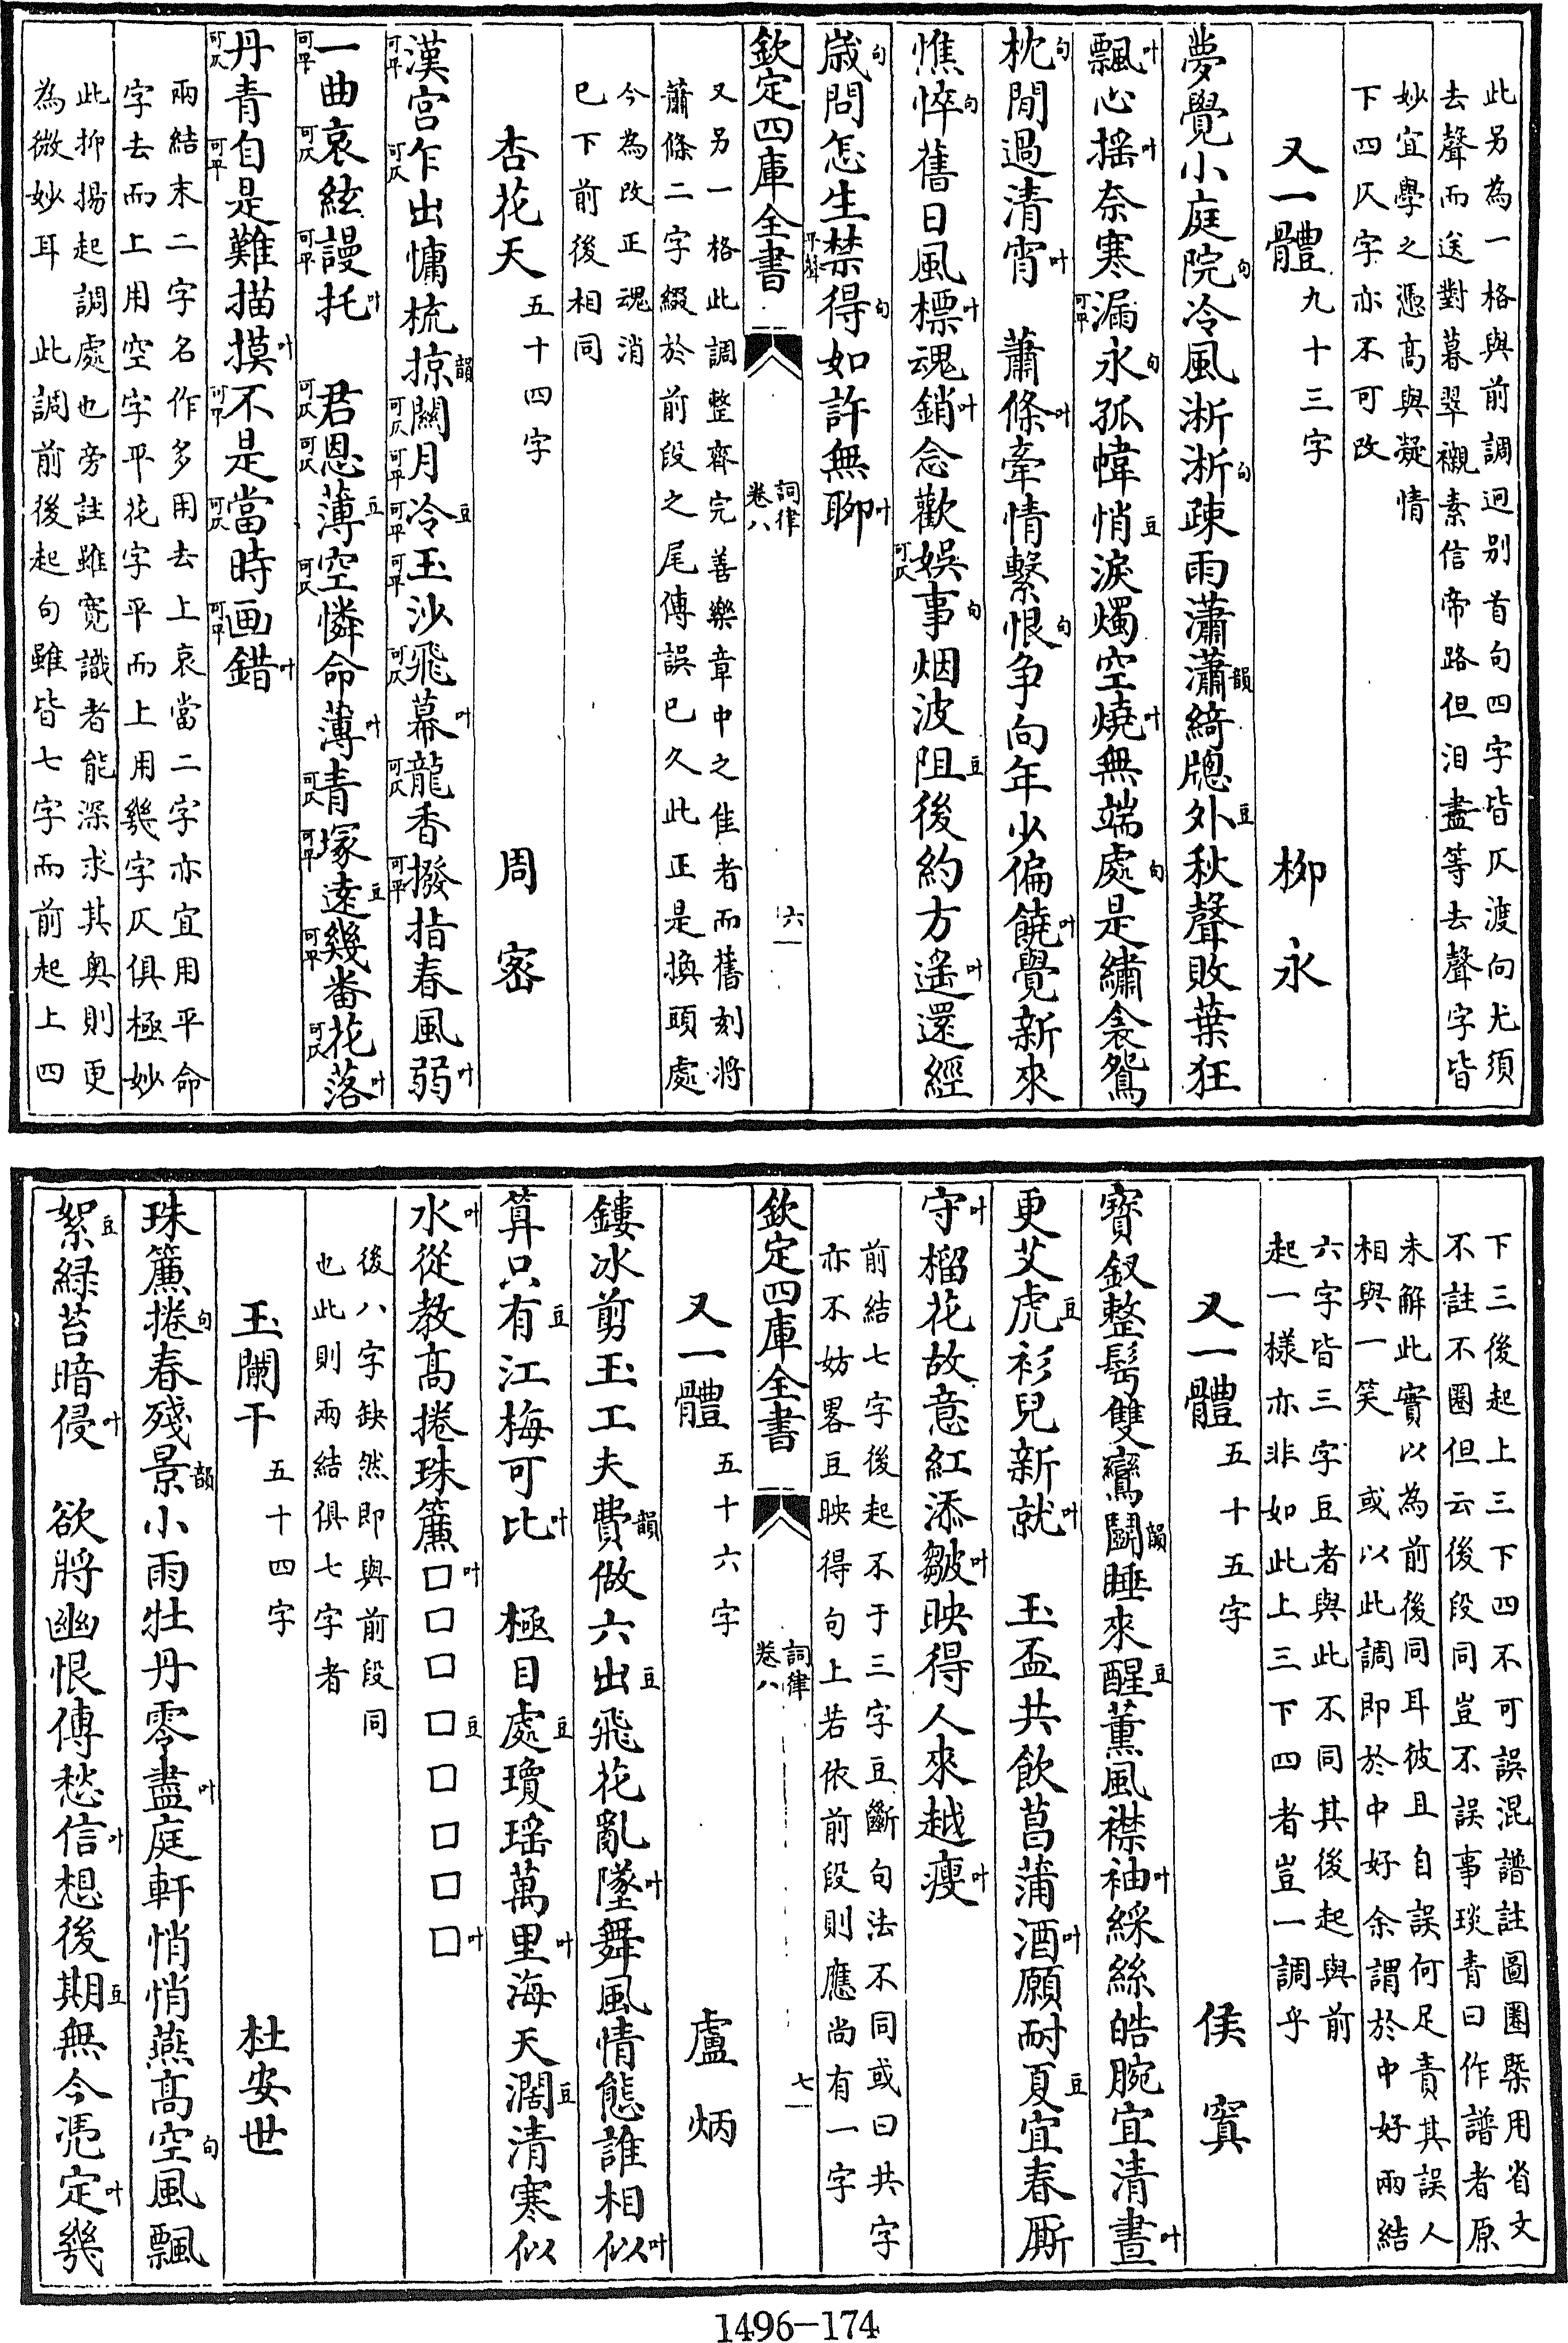 此另為一格與前調迥别首句四字皆仄渡向尤須
去聲而送對暮翠襯素信帝路但泪盡等去聲字皆
妙宜學之憑高與凝情
下四仄字亦不可改
又一體九十三字　柳永
夢覺小庭院句冷風淅淅句疎雨瀟瀟韻綺牕外豆秋聲敗葉狂
飄叶心摇叶奈寒漏可平永句孤幃悄豆淚燭空燒叶無端處句是繡衾鴛
枕句閒過清宵叶　蕭條叶牽情繫恨句争向年少偏饒叶覺新來
憔悴句舊日風標叶魂銷叶念歡娱可仄事句烟波阻豆後約方遥叶還經
歲句問怎生禁平聲得句如許無聊叶
欽定四庫全書　詞律　卷八　六
又另一格此調整齊完善樂章中之隹者而舊刻將
蕭條二字綴於前段之尾傳誤已久此正是換頭處
今為改正魂消
已下前後相同
杏花天五十四字　周密
漢可平宫乍可仄出慵梳掠韻關可仄月可平冷可平豆玉可平沙飛可仄幕叶龍可仄香撥可平指春風弱叶
一可平曲哀可仄絃謾可平托叶　君可仄恩可仄薄豆空可仄憐命薄叶青可仄塚可平遠豆幾可平番花可仄落叶
丹可仄青自可平是難描摸叶不可平是當可仄時画可平錯叶
兩結末二字名作多用去上哀當二字亦宜用平命
字去而上用空字平花字平而上用幾字仄俱極妙
此抑揚起調處也旁註雖寛識者能深求其奥則更
為微妙耳　此調前後起句雖皆七字而前起上四
下三後起上三下四不可誤混譜註圖圈槩用省文
不註不圈但云後段同豈不誤事琰青曰作譜者原
未解此實以為前後同耳彼且自誤何足責其誤人
相與一笑　或以此調即於中好余謂於中好兩結
六字皆三字豆者與此不同其後起與前
起一様亦非如此上三下四者豈一調乎
又一體五十五字　侯寘
寳釵整髻雙鸞鬬韻睡來醒豆薰風襟袖叶綵絲皓腕宜清晝叶
更艾虎豆衫兒新就叶　玉盃共飲菖蒲酒叶願耐夏豆宜春厮
守叶榴花故意紅添皺叶映得人來越瘦叶
前結七字後起不于三字豆斷句法不同或曰共字
亦不妨畧豆映得句上若依前段則應尚有一字
欽定四庫全書　詞律　卷八　七
又一體五十六字　盧炳
鏤冰剪玉工夫費韻做六出豆飛花亂墜叶舞風情態誰相似叶
算只有豆江梅可比叶　極目處豆瓊瑶萬里叶海天濶豆清寒似
水叶從教高捲珠簾□叶□□□豆□□□□叶
後八字缺然即與前段同
也此則兩結俱七字者
玉闌干五十四字　杜安世
珠簾捲句春殘景韻小雨牡丹零盡叶庭軒悄悄燕高空句風飄
絮豆緑苔暗侵叶　欲將幽恨傳愁信叶想後期豆無今憑定叶幾
1496—174